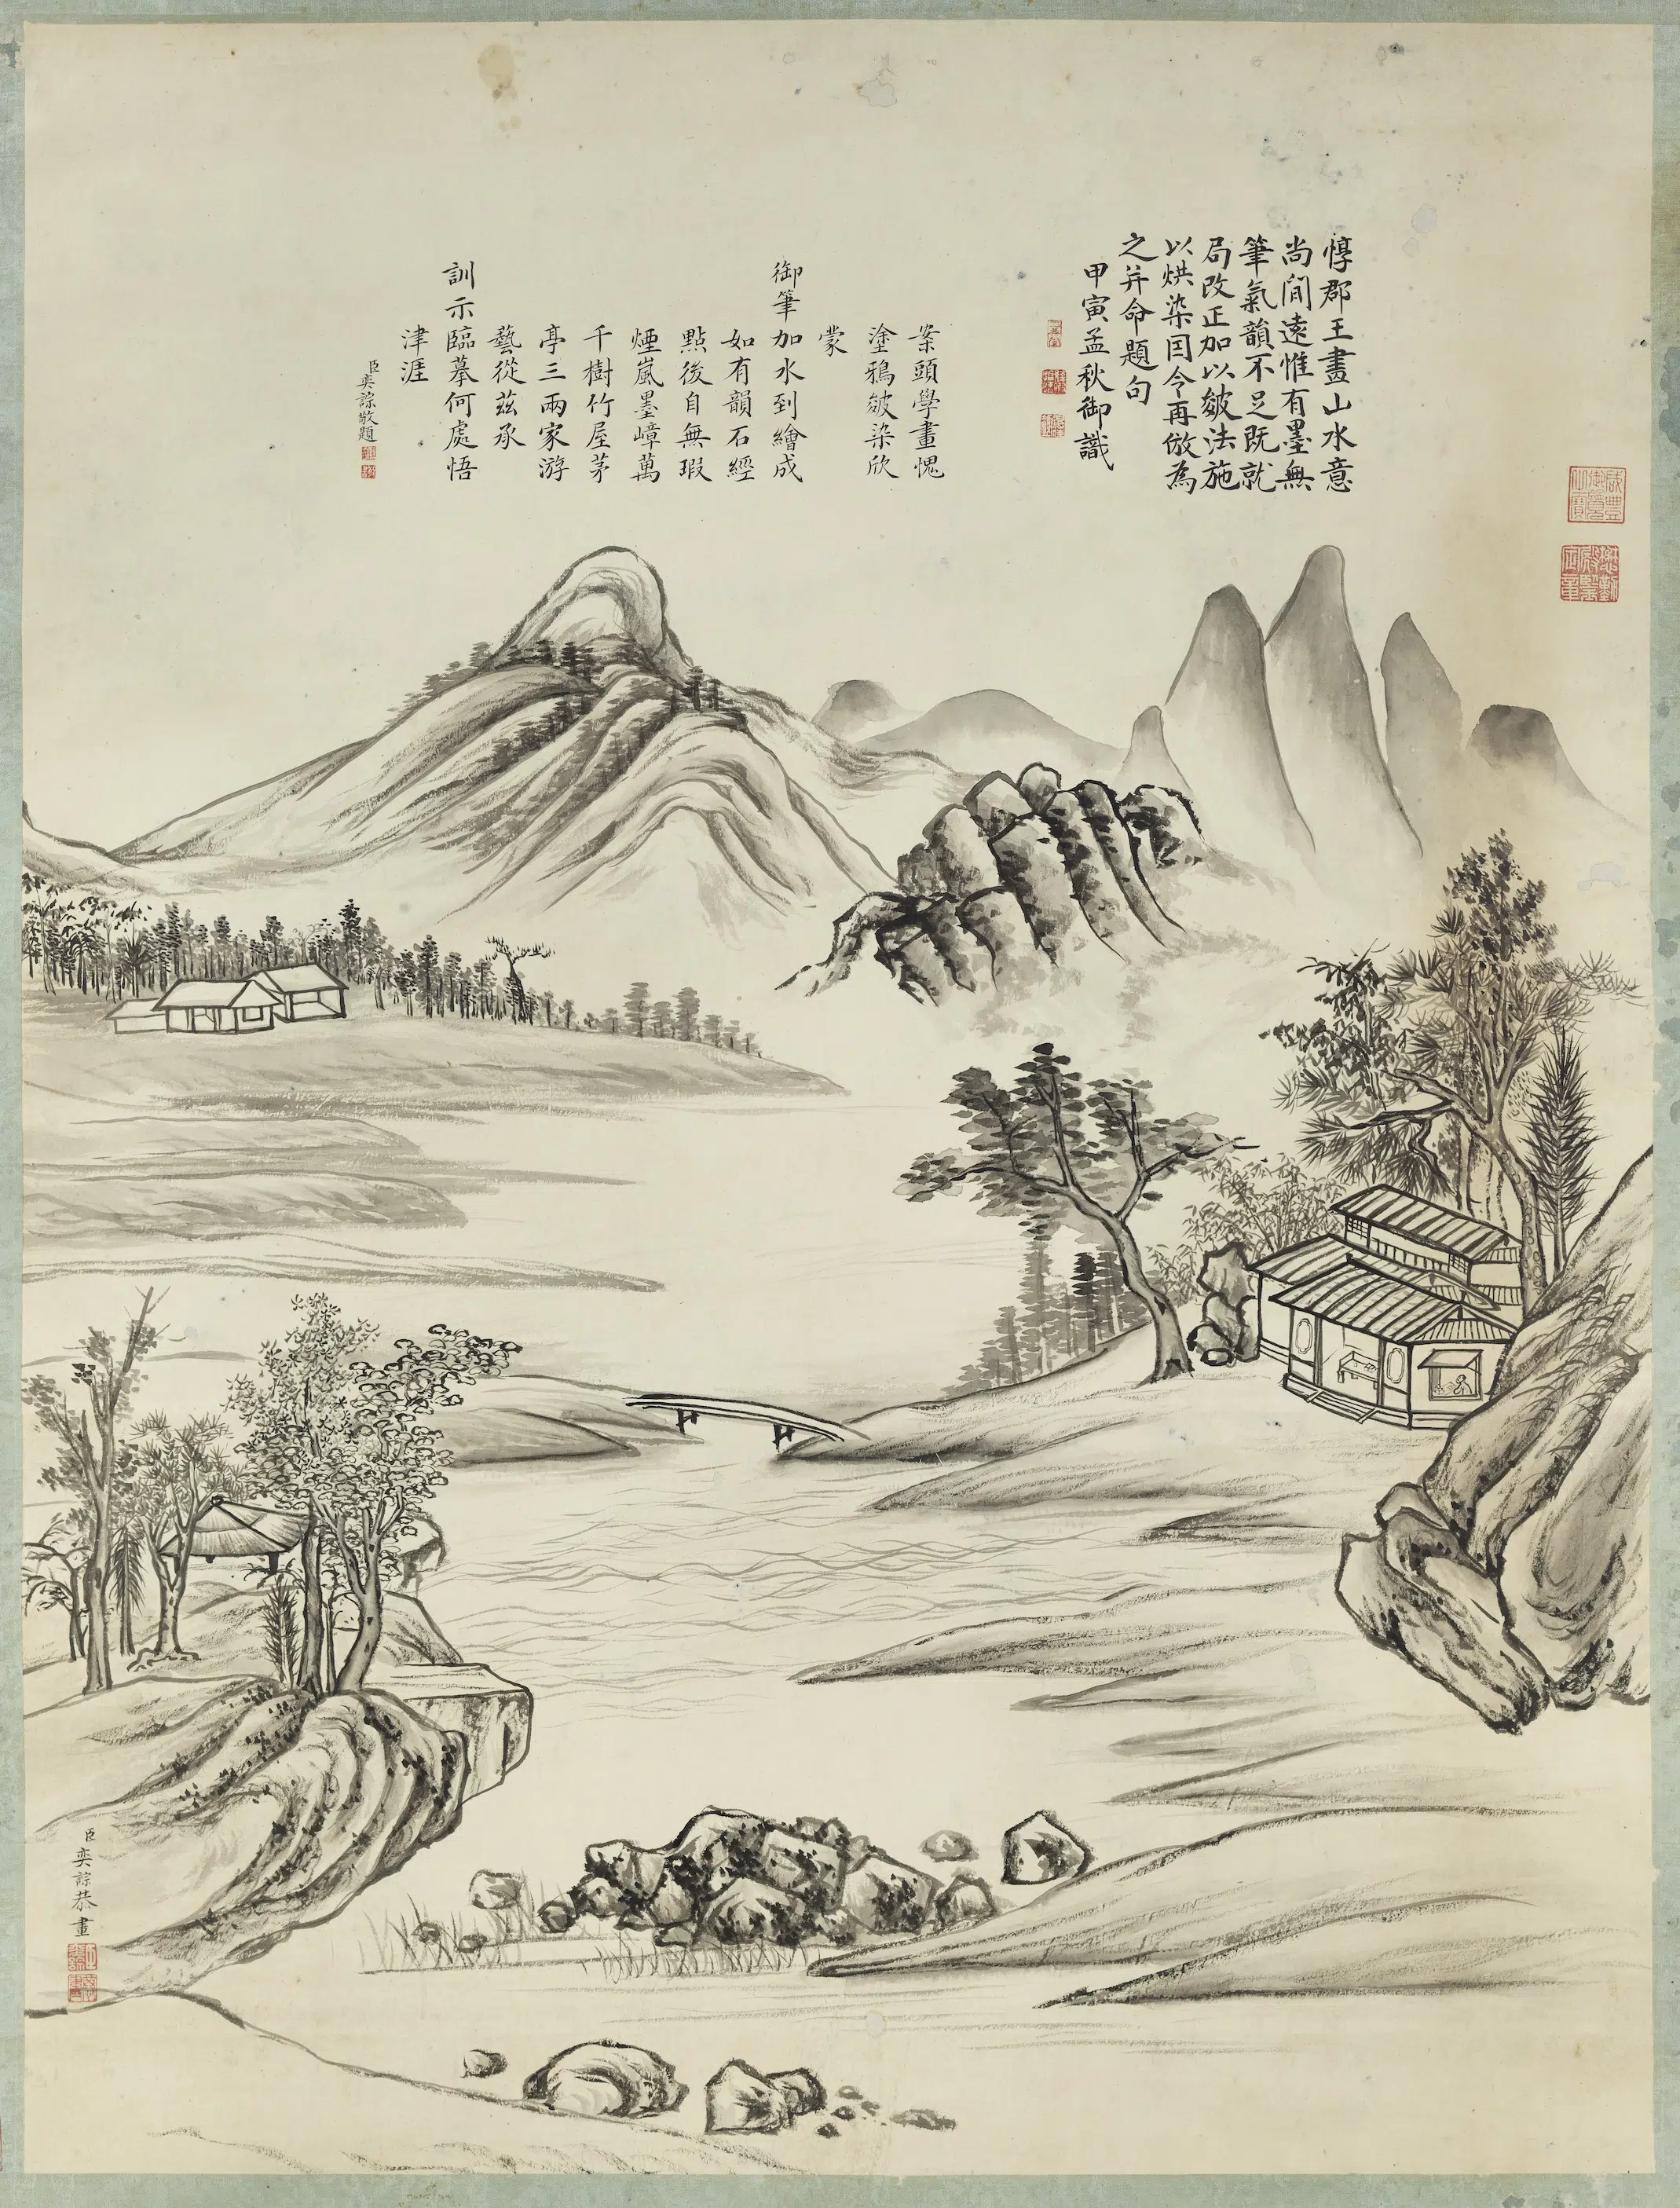 惇郡王畫山水意
尚闊遠惟有墨無
筆氣韻不足既就
局改正加以皴法施
以烘染因令再倣為
之并命題句
甲寅孟秋御識
案頭學畫愧
塗鴉皴染欣
蒙
御筆加水到繪成
如有韻石經
點後自無瑕
煙嵐墨嶂萬
千樹竹屋茅
亭三兩家游
藝從茲承
訓示臨摹何處悟
津涯
臣奕誴敬題
臣奕誴恭畫
咸豐御覽之寶